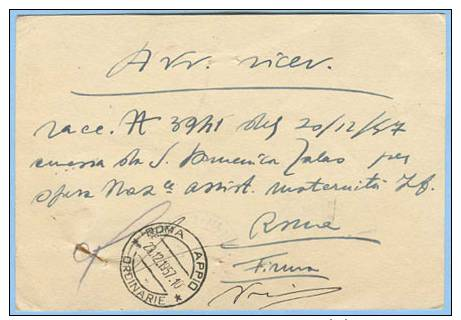 Avv. ricev.
racc. A 3941 del 20/12/57
emessa da S. Domenica Talao per
opera Naz.le assist. maternità
Roma
Firma
ROMA APPIO
21.12.1957.10
ORDINARIE